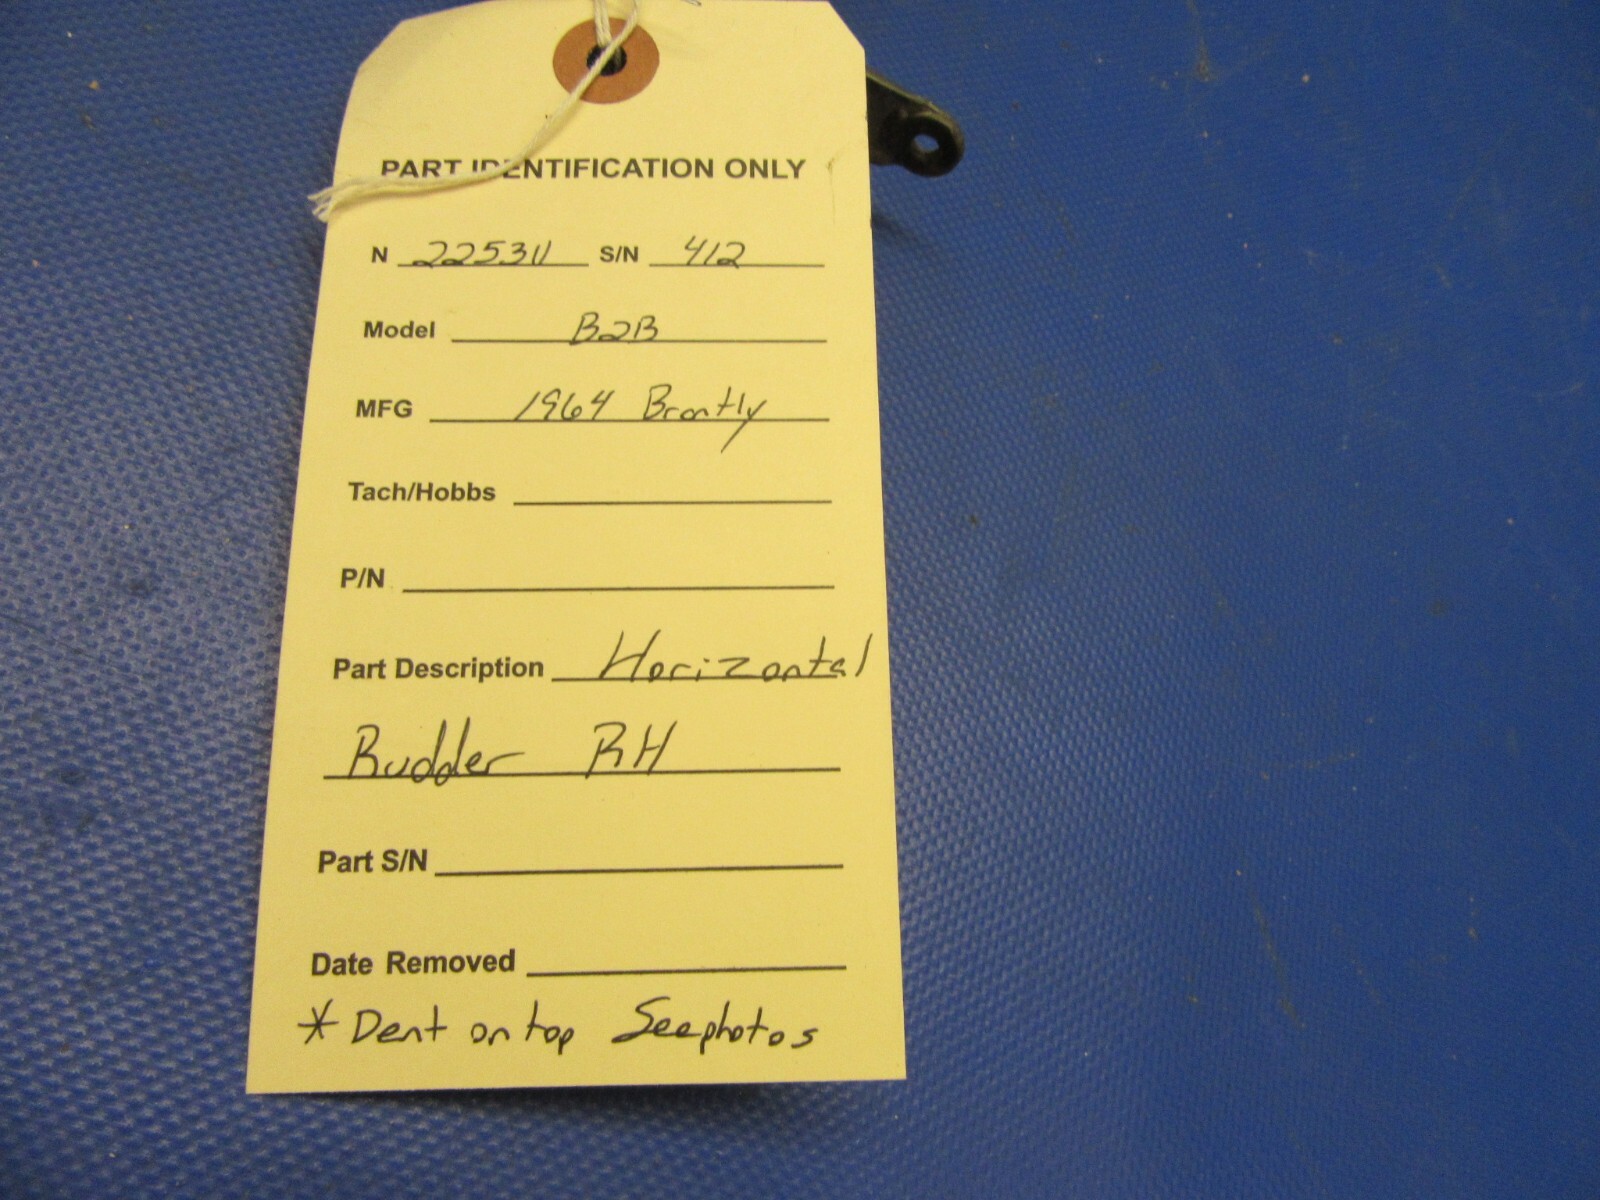 PART IDENTIFICATION ONLY
N 2253U S/N 412
Model B2B
MFG 1964 Brantly
Tach/Hobbs
P/N
Part Description Horizontal
Rudder RH
Part S/N
Date Removed
* Dent on top See photos